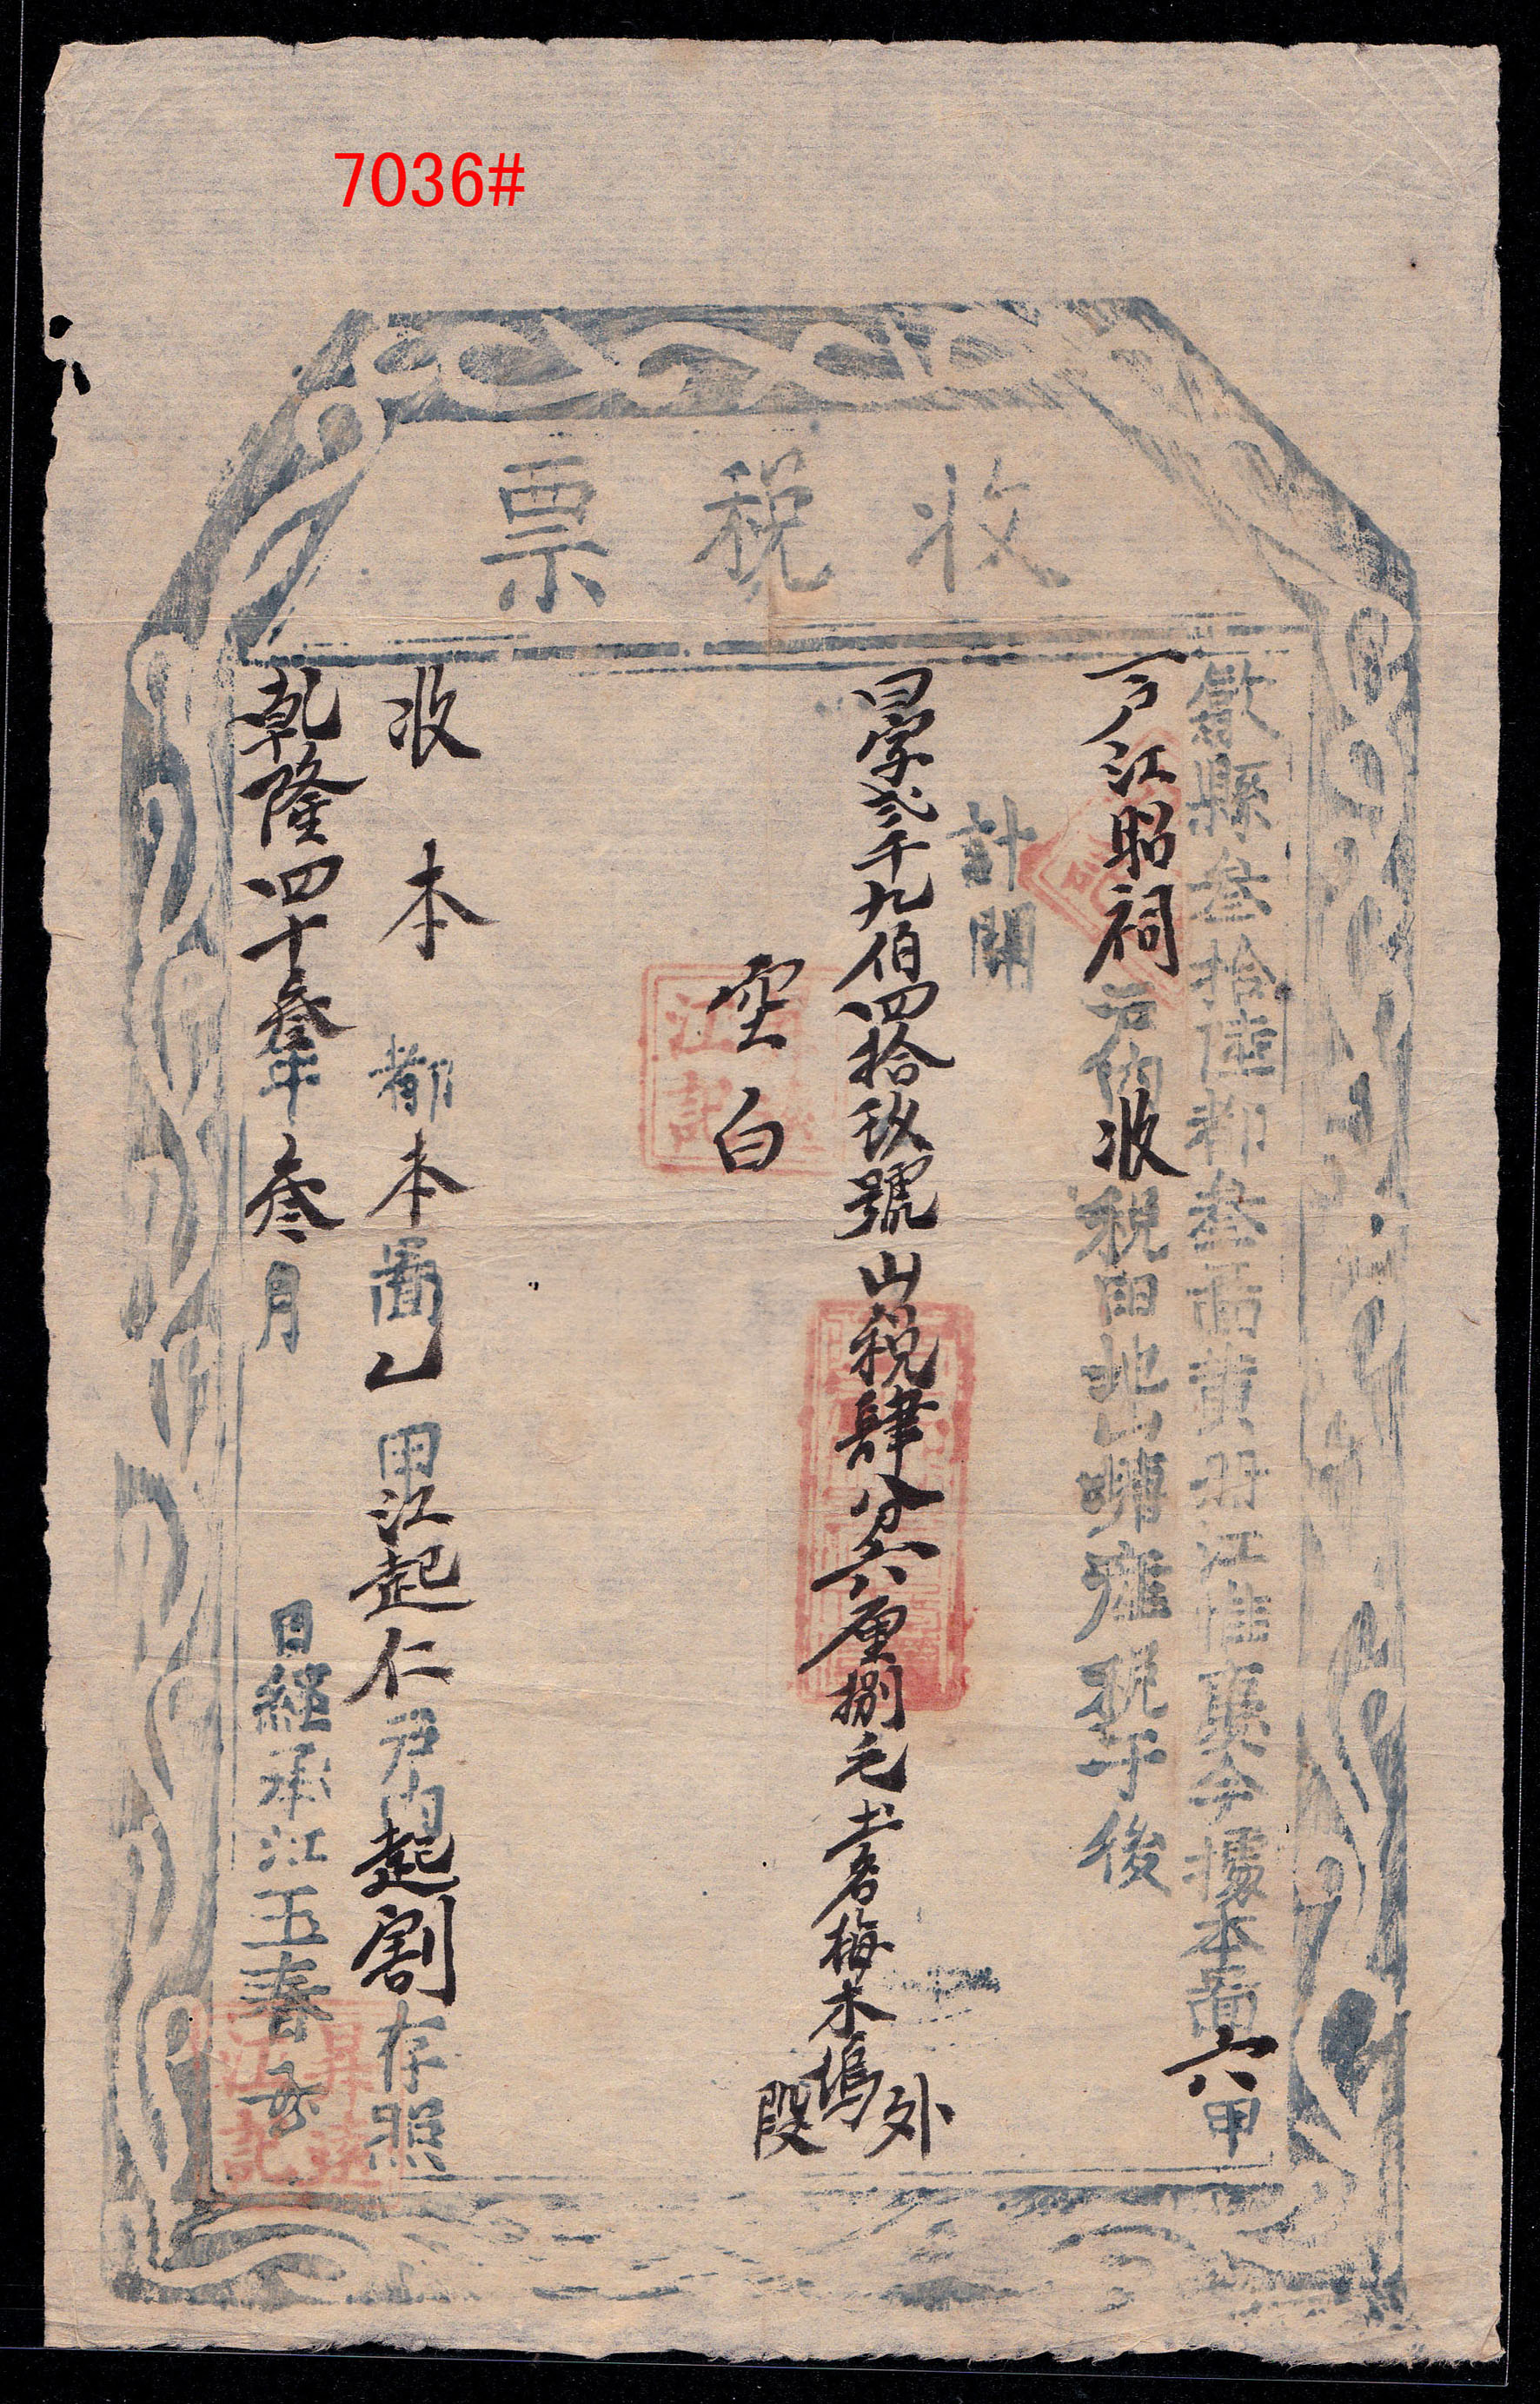 7036#
收稅票
歙縣叁拾陸都叁啚黃冊江惟今據本啚六甲
一户江昭祠户内收稅田地山塘產稅于後
計開
字弍千九伯四拾玖號山稅肆分六厘捌毛土名梅木塢外段
空白
收本都本啚乙甲江起仁户内起割存照
乾隆四十叁年叁月日經承江玉春